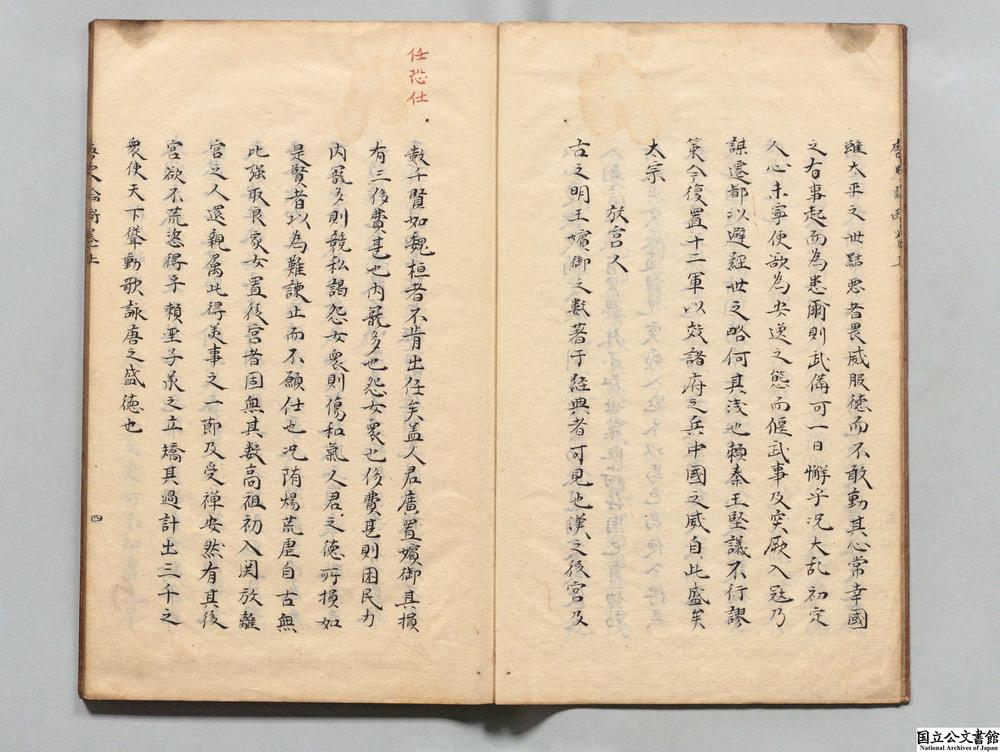 雖太平之世黠悪者畏威服徳而不敢動其心常幸國
之有事起而為患爾則武俻可一日懈乎况大乱初定
人心未寧便欲為安逸之態而偃武事及突厥入冦乃
謀遷都以避經世之略何其浅也賴秦王堅議不行謬
策今復置十二軍以效諸府之兵中國之威自此盛矣
太宗
放宫人
古之明王嬪御之數著于經典者可見也漢之後宫及
數千賢如魏桓者不肯出任矣盖人君廣置嬪御其損
有三侈費甚也内寵多也怨女衆也侈費甚則困民力
内寵多則競私謁怨女衆則傷和氣人君之徳所損如
是賢者以為難諫止而不願仕也况隋煬荒虐自古無
比强取良家女置後宫者固無其數髙祖初入関放離
宫之人還親屬此得美事之一節及受禅安然有其後
宫欲不荒恣得乎賴聖子羕之立矯其過計出三千之
衆使天下聳動歌詠唐之盛徳也
唐史論断巻上
四
任恐仕
国立公文書館
National Archives of Japan